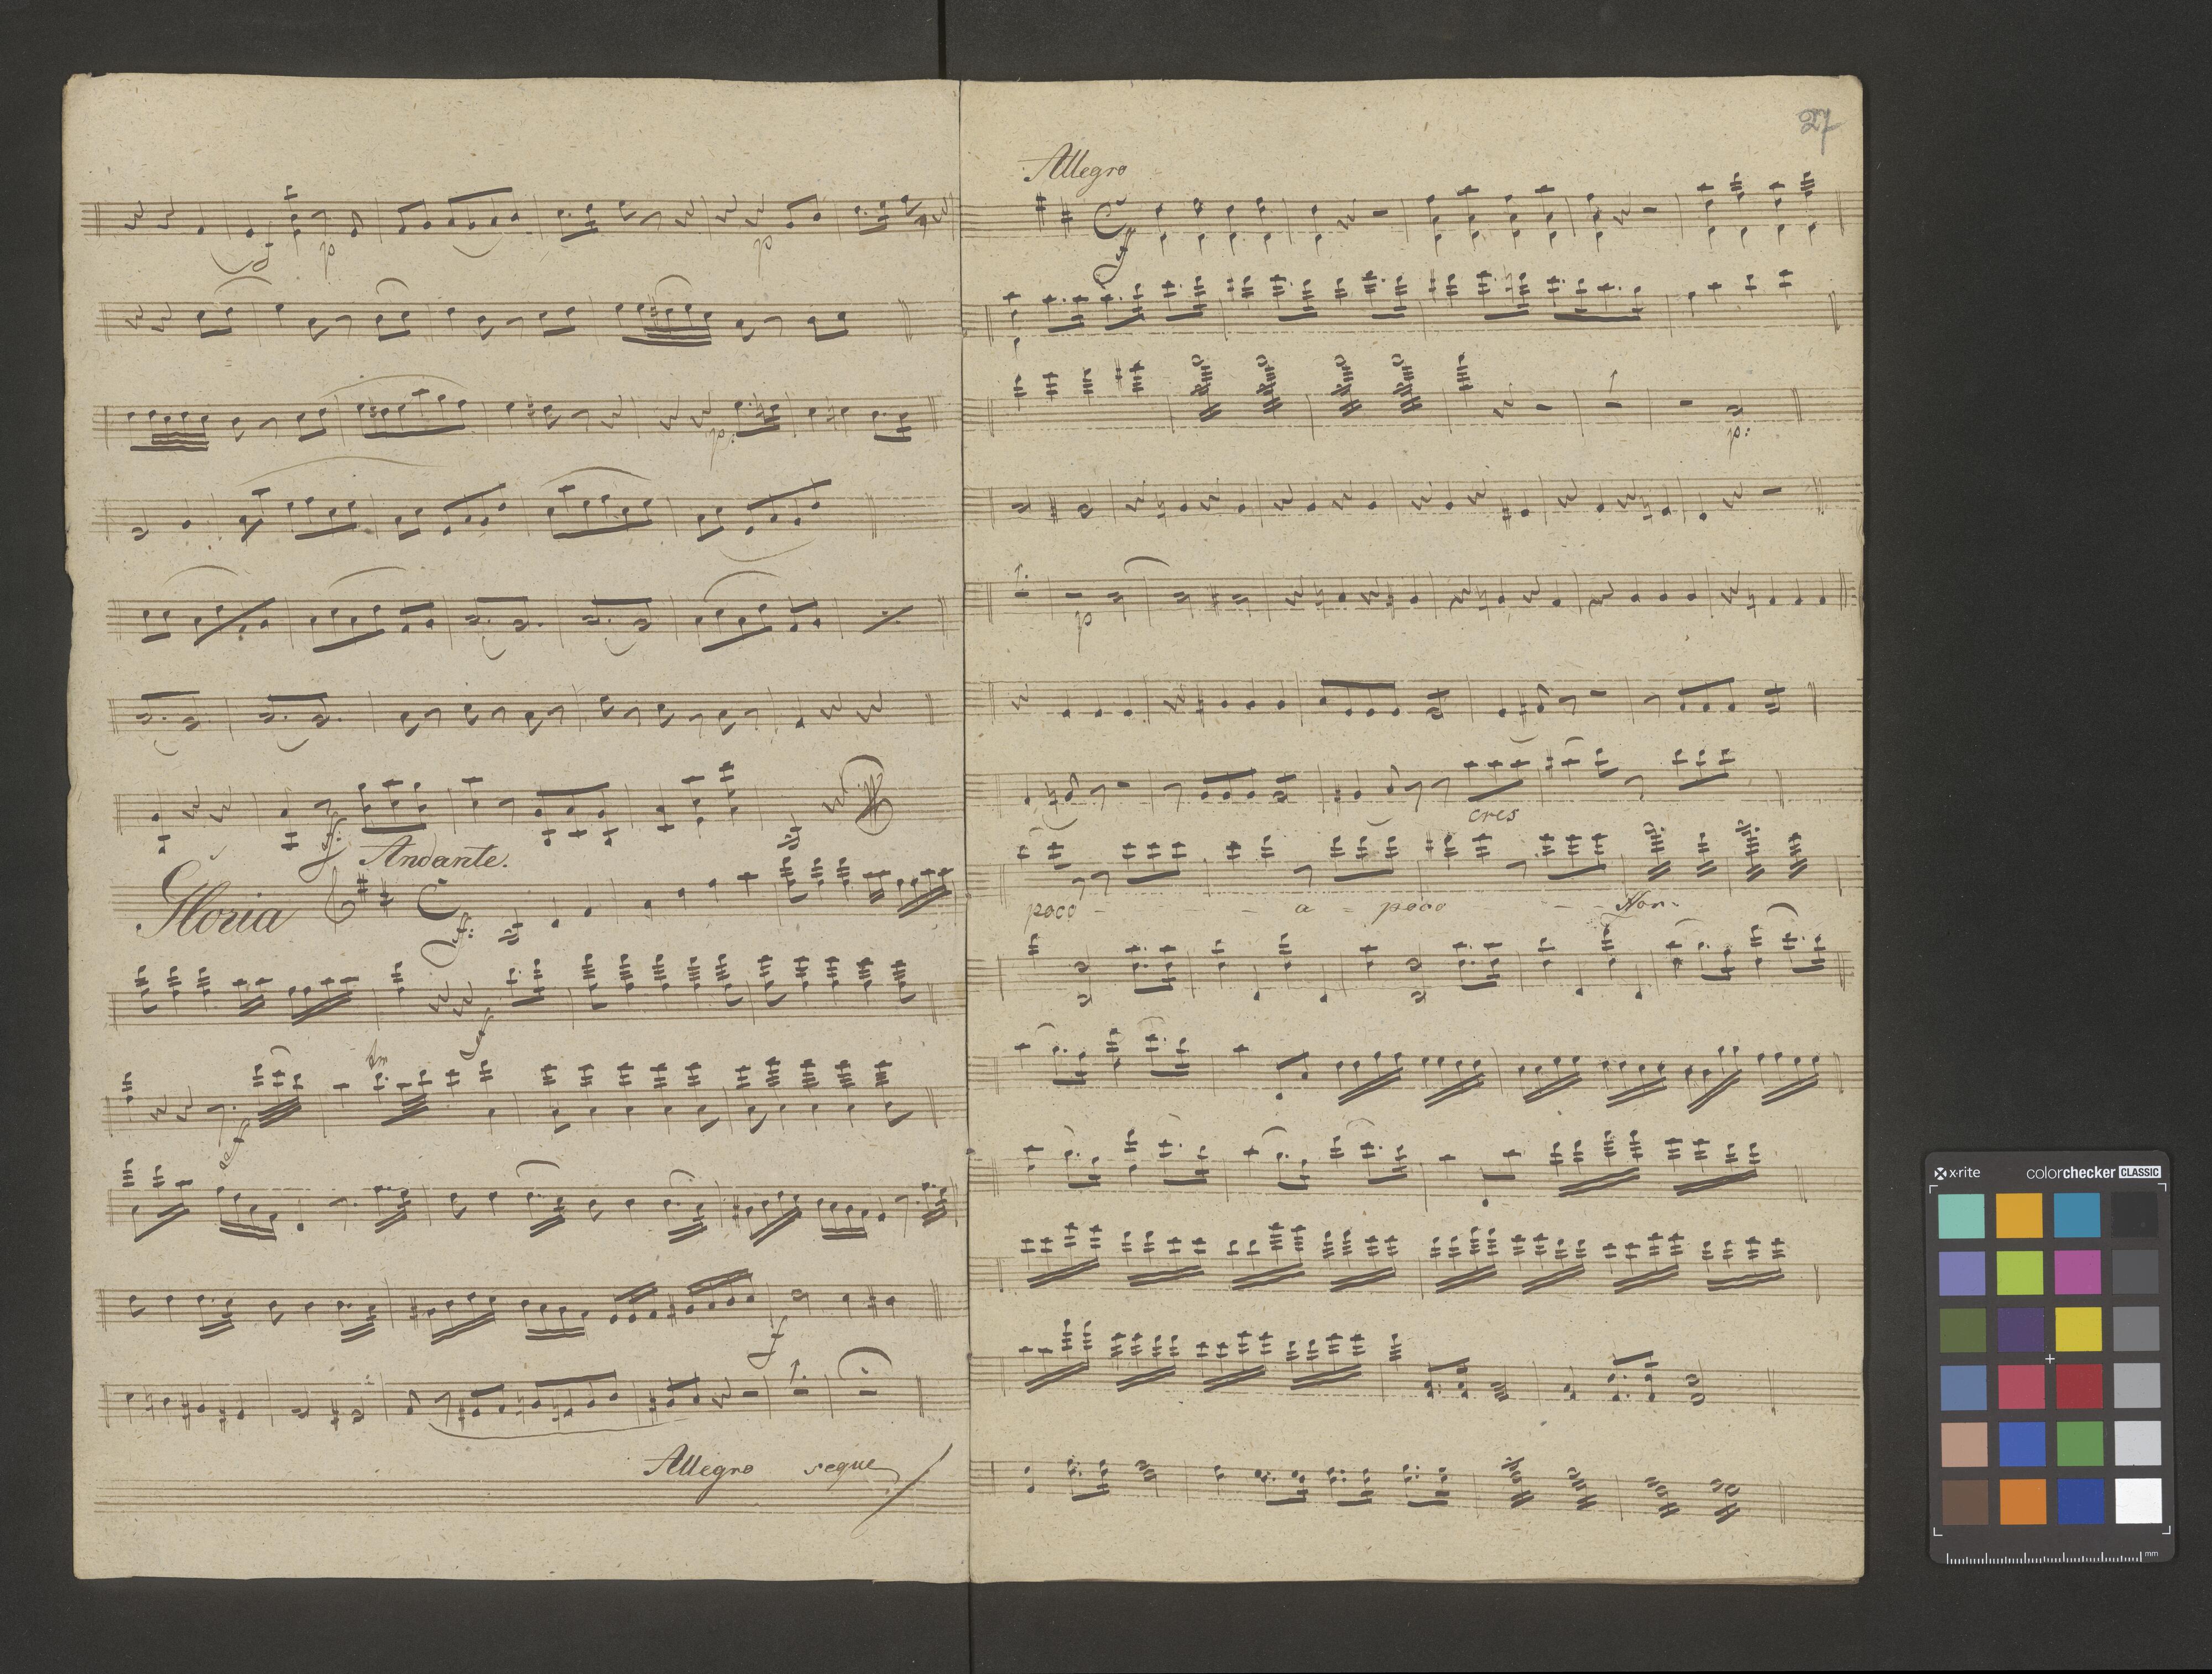 f p p
p:
f: Andante.
Gloria f:
f
tr
sf
f
Allegro segue
27
Allegro
f
p:
p
cres
poco - - a - poco - - For-
x-rite colorchecker CLASSIC
mm